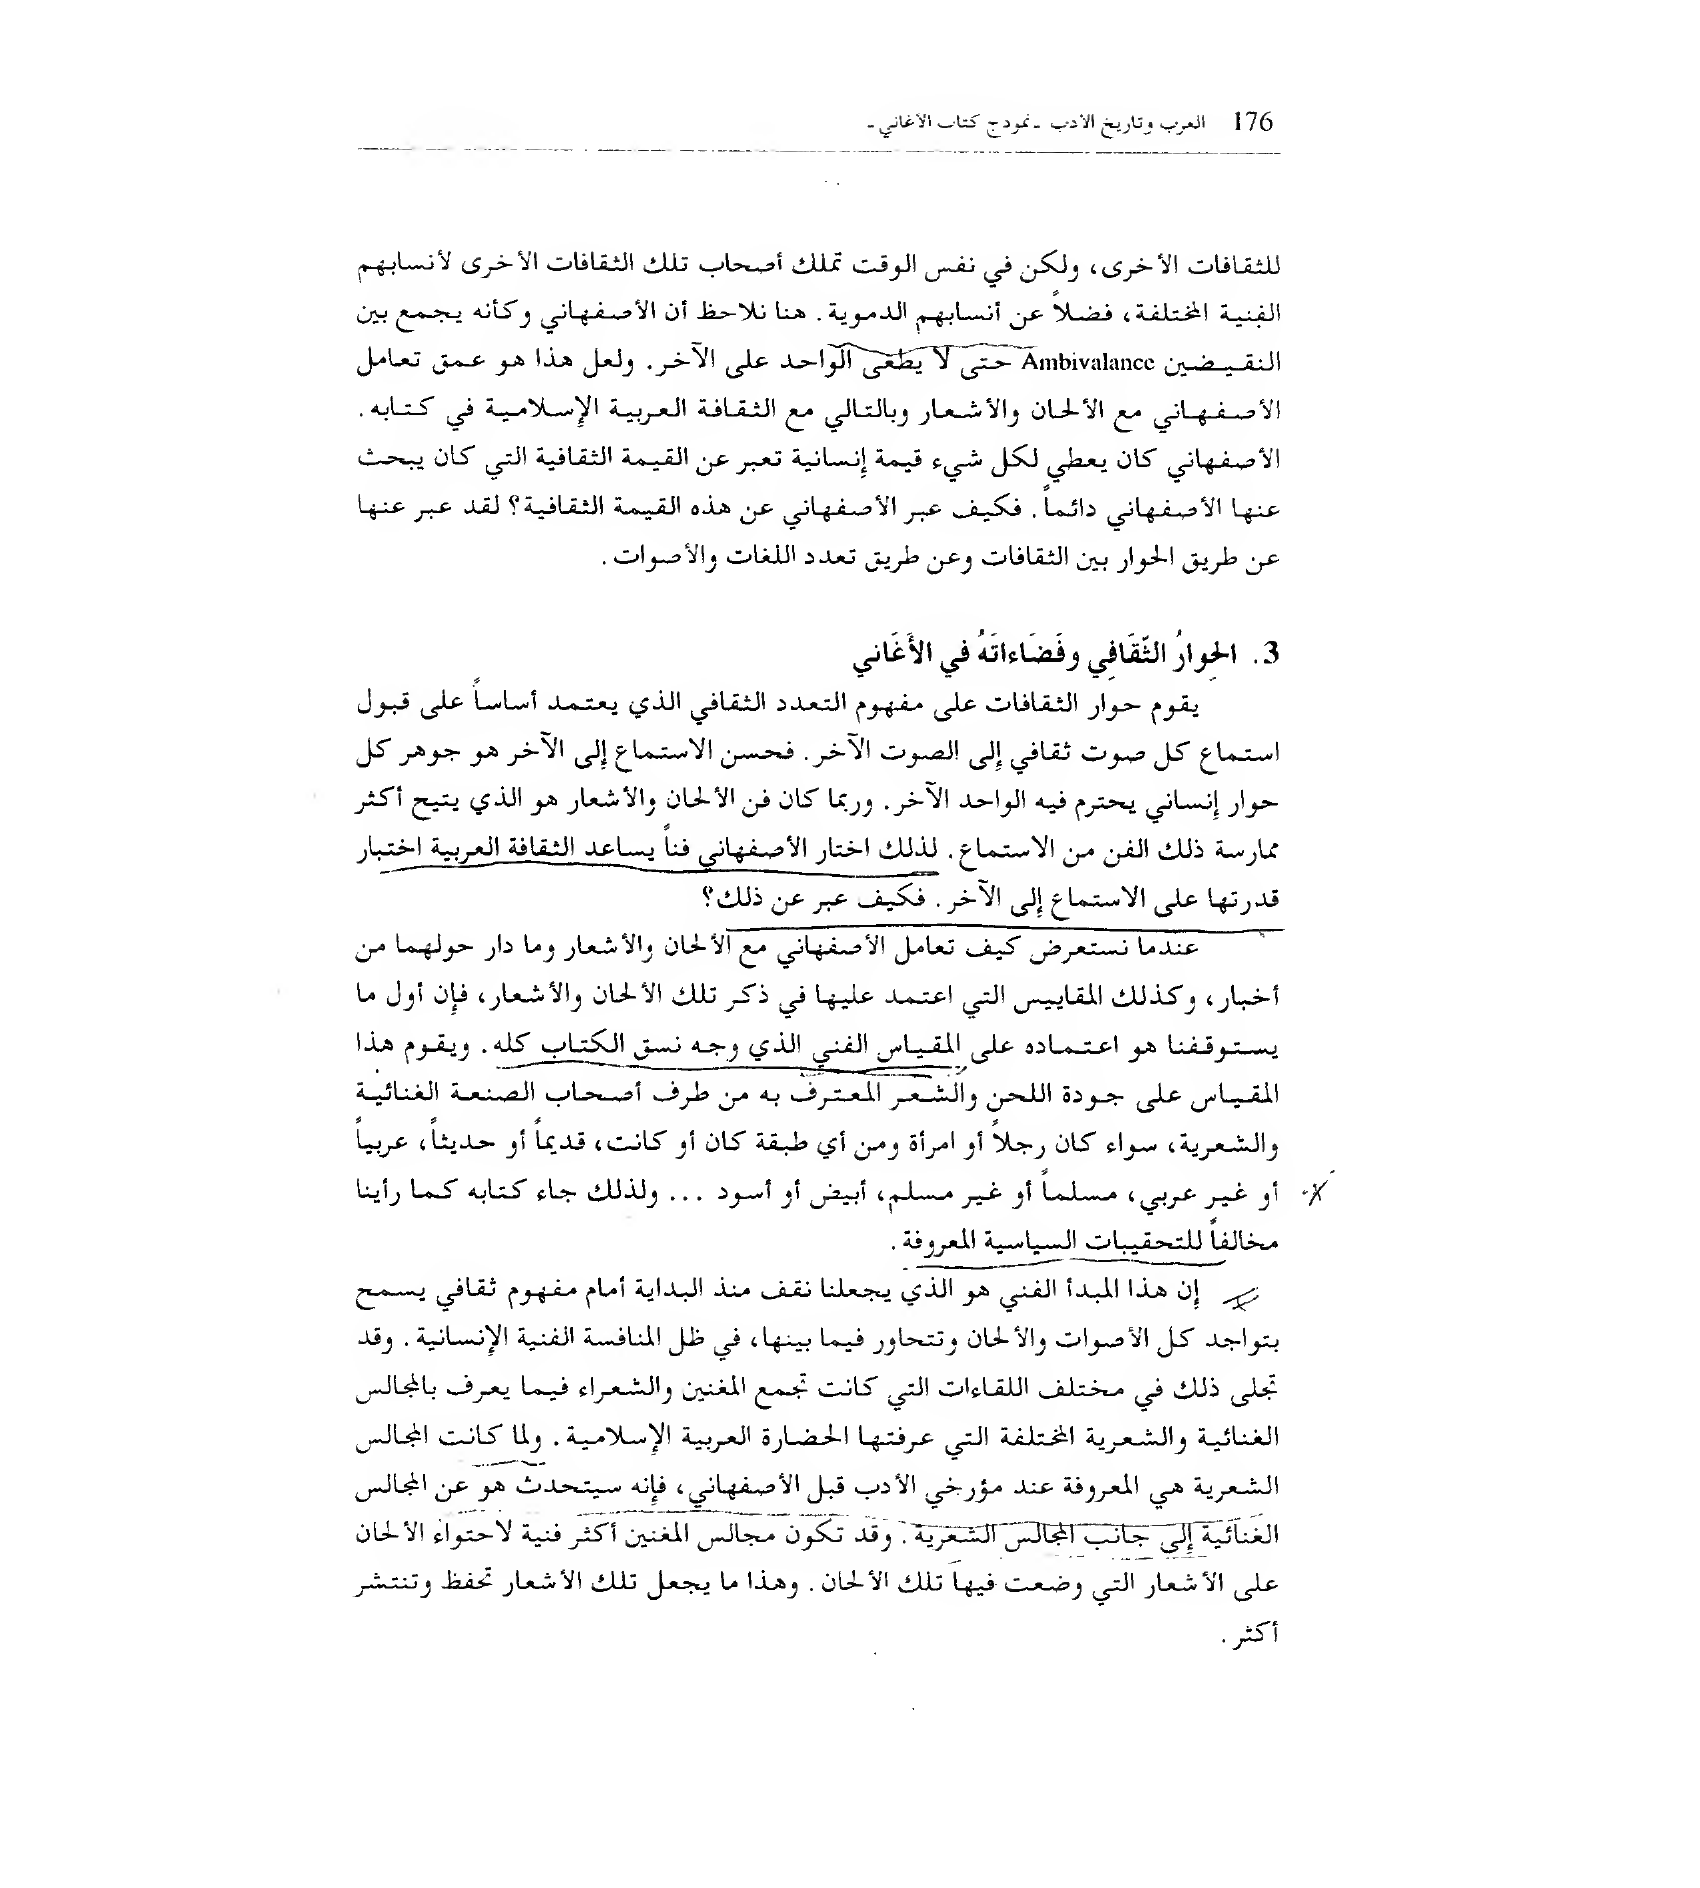 176 العرب وتاريخ الأدب ـ نموذج كتاب الأغاني ـ
للثقافات الأخرى، ولكن في نفس الوقت تملك أصحاب تلك الثقافات الأخرى لأنسابهم
الفنية المختلفة، فضلاً عن أنسابهم الدموية. هنا نلاحظ أن الأصفهاني وكأنه يجمع بين
النقيضين Ambivalance حتى لا يطغى الواحد على الآخر. ولعل هذا هو عمق تعامل
الأصفهاني مع الألحان والأشعار وبالتالي مع الثقافة العربية الإسلامية في كتابه.
الأصفهاني كان يعطي لكل شيء قيمة إنسانية تعبر عن القيمة الثقافية التي كان يبحث
عنها الأصفهاني دائماً. فكيف عبر الأصفهاني عن هذه القيمة الثقافية؟ لقد عبر عنها
عن طريق الحوار بين الثقافات وعن طريق تعدد اللغات والأصوات.
3. الحِوارُ الثّقَافِي وفَضَاءاتَهُ في الأَغَاني
يقوم حوار الثقافات على مفهوم التعدد الثقافي الذي يعتمد أساساً على قبول
استماع كل صوت ثقافي إلى الصوت الآخر. فحسن الاستماع إلى الآخر هو جوهر كل
حوار إنساني يحترم فيه الواحد الآخر. وربما كان فن الألحان والأشعار هو الذي يتيح أكثر
ممارسة ذلك الفن من الاستماع. لذلك اختار الأصفهاني فناً يساعد الثقافة العربية اختبار
قدرتها على الاستماع إلى الآخر. فكيف عبر عن ذلك؟
عندما نستعرض كيف تعامل الأصفهاني مع الألحان والأشعار وما دار حولهما من
أخبار، وكذلك المقاييس التي اعتمد عليها في ذكر تلك الألحان والأشعار، فإن أول ما
يستوقفنا هو اعتماده على المقياس الفني الذي وجه نسق الكتاب كله. ويقوم هذا
المقياس على جودة اللحن والشعر المعترف به من طرف أصحاب الصنعة الغنائية
والشعرية، سواء كان رجلاً أو امرأة ومن أي طبقة كان أو كانت، قديماً أو حديثاً، عربياً
أو غير عربي، مسلماً أو غير مسلم، أبيض أو أسود ... ولذلك جاء كتابه كما رأينا
مخالفاً للتحقيبات السياسية المعروفة.
إن هذا المبدأ الفني هو الذي يجعلنا نقف منذ البداية أمام مفهوم ثقافي يسمح
بتواجد كل الأصوات والألحان وتتحاور فيما بينها، في ظل المنافسة الفنية الإنسانية. وقد
تجلى ذلك في مختلف اللقاءات التي كانت تجمع المغنين والشعراء فيما يعرف بالمجالس
الغنائية والشعرية المختلفة التي عرفتها الحضارة العربية الإسلامية. ولما كانت المجالس
الشعرية هي المعروفة عند مؤرخي الأدب قبل الأصفهاني، فإنه سيتحدث هو عن المجالس
الغنائية إلى جانب المجالس الشعرية. وقد تكون مجالس المغنين أكثر فنية لاحتواء الألحان
على الأشعار التي وضعت فيها تلك الألحان. وهذا ما يجعل تلك الأشعار تحفظ وتنتشر
أكثر.